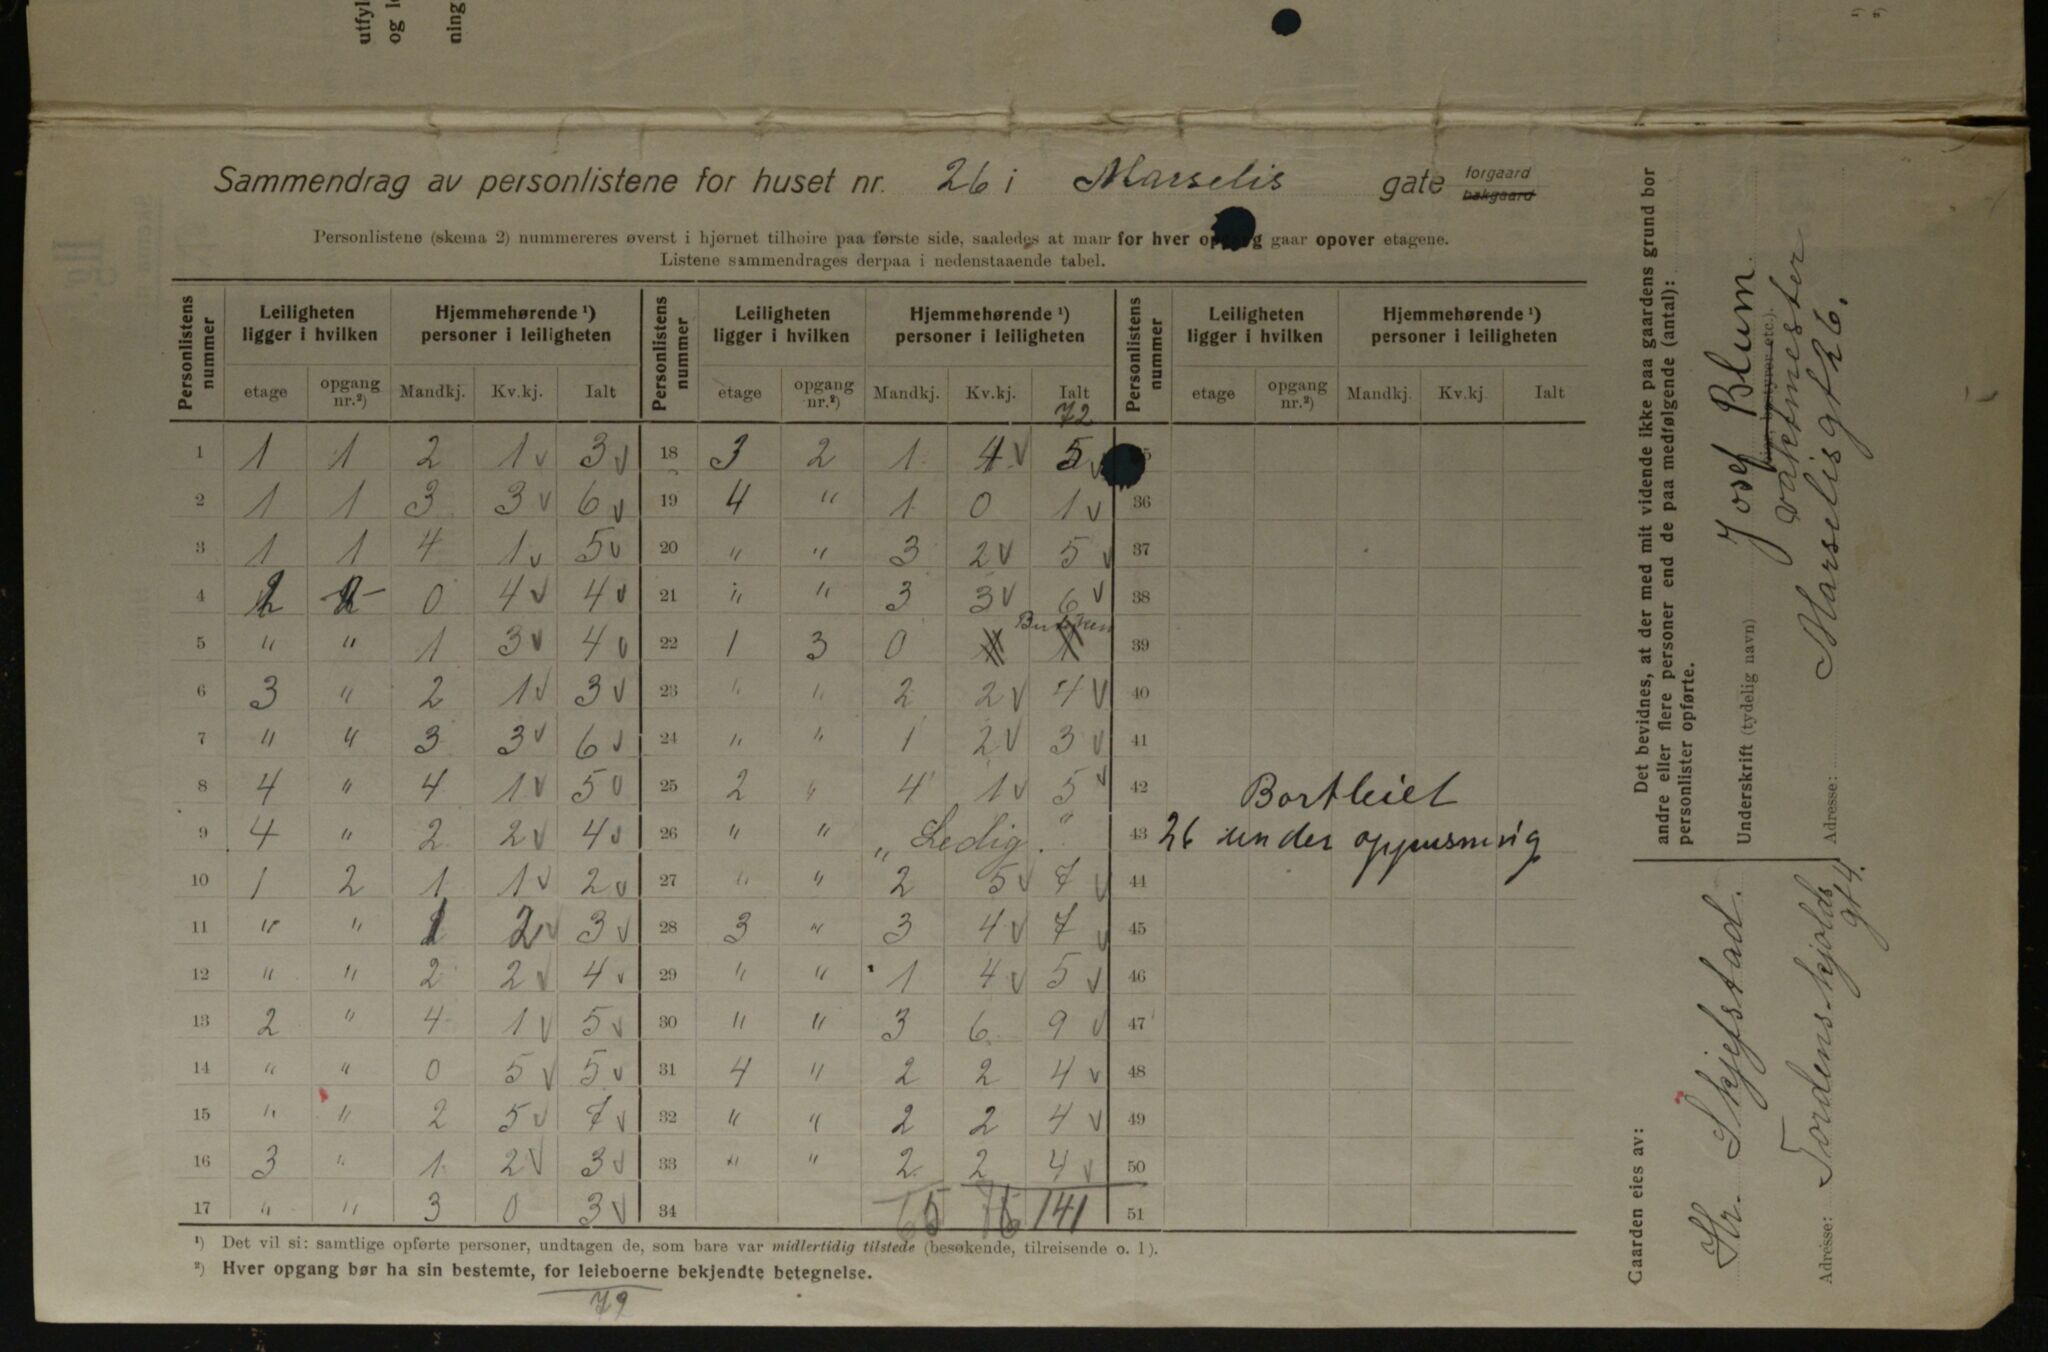 utfyl
og l
ning
¹)
²)
Sammendrag av personlistene for huset nr. 26 i Marselis gate forgaard bakgaard
Personlistene (skema 2) nummereres øverst i hjørnet tilhøire paa første side, saaledes at man for hver opgang gaar opover etagene.
Listene sammendrages derpaa i nedenstaaende tabel.
Personlistens nummer | Leiligheten ligger i hvilken | Hjemmehørende ¹) personer i leiligheten | Personlistens nummer | Leiligheten ligger i hvilken | Hjemmehørende ¹) personer i leiligheten | Personlistens nummer | Leiligheten ligger i hvilken | Hjemmehørende ¹) personer i leiligheten
etage | opgang nr.²) | Mandkj. | Kv.kj. | Ialt | etage | opgang nr.²) | Mandkj. | Kv.kj. | Ialt | etage | opgang nr.²) | Mandkj. | Kv.kj. | Ialt
72
1 | 1 | 1 | 2 | 1 v | 3 v | 18 | 3 | 2 | 1 | 4 v | 5 v | 35
2 | 1 | 1 | 3 | 3 v | 6 v | 19 | 4 | " | 1 | 0 | 1 v | 36
3 | 1 | 1 | 4 | 1 v | 5 v | 20 | " | " | 3 | 2 v | 5 v | 37
4 | 2 | | 0 | 4 v | 4 v | 21 | " | " | 3 | 3 v | 6 v | 38
5 | " | " | 1 | 3 v | 4 v | 22 | 1 | 3 | 0 | 1 | 1 | 39
6 | 3 | " | 2 | 1 v | 3 v | 23 | " | " | 2 | 2 v | 4 v | 40
7 | " | " | 3 | 3 v | 6 v | 24 | " | " | 1 | 2 v | 3 v | 41
8 | 4 | " | 4 | 1 v | 5 v | 25 | 2 | " | 4 | 1 v | 5 v | 42 | Bortleiet
9 | 4 | " | 2 | 2 v | 4 v | 26 | " | " | " Ledig. " | 43 | 26 under oppusning
10 | 1 | 2 | 1 | 1 v | 2 v | 27 | " | " | 2 | 5 v | 7 v | 44
11 | " | " | 1 | 2 v | 3 v | 28 | 3 | " | 3 | 4 v | 7 v | 45
12 | " | " | 2 | 2 v | 4 v | 29 | " | " | 1 | 4 v | 5 v | 46
13 | 2 | " | 4 | 1 v | 5 v | 30 | " | " | 3 | 6 | 9 v | 47
14 | " | " | 0 | 5 v | 5 v | 31 | 4 | " | 2 | 2 | 4 v | 48
15 | " | " | 2 | 5 v | 7 v | 32 | " | " | 2 | 2 | 4 v | 49
16 | 3 | " | 1 | 2 v | 3 v | 33 | " | " | 2 | 2 | 4 v | 50
17 | " | " | 3 | 0 | 3 v | 34 | | | 65 | 76 | 141 | 51
¹) Det vil si: samtlige opførte personer, undtagen de, som bare var midlertidig tilstede (besøkende, tilreisende o. l).
²) Hver opgang bør ha sin bestemte, for leieboerne bekjendte betegnelse.
72
Det bevidnes, at der med mit vidende ikke paa gaardens grund bor
andre eller flere personer end de paa medfølgende (antal):
personlister opførte.
Underskrift (tydelig navn) Josef Blum
vaktmester
Adresse: Marselisgt 26.
Gaarden eies av:
Hr. Skjefstad.
Adresse: Tordenskjolds
gt 4.